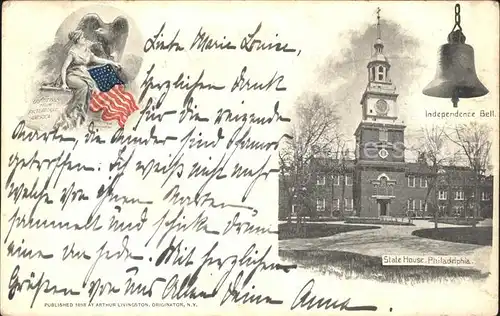 Liebe Marie Louise,
Herzlichen Dank
für die reizende
Karte, die Kinder sind famos
getroffen. Ich weiß nicht mehr
Welche von Ihnen Karten
sammelt und schicke drum
eine an jede. Mit herzlichen
Grüßen von uns Allen Deine Anna.
Independence Bell.
State House, Philadelphia.
PUBLISHED 1898 AT ARTHUR LIVINGSTON, ORIGINATOR, N.Y.